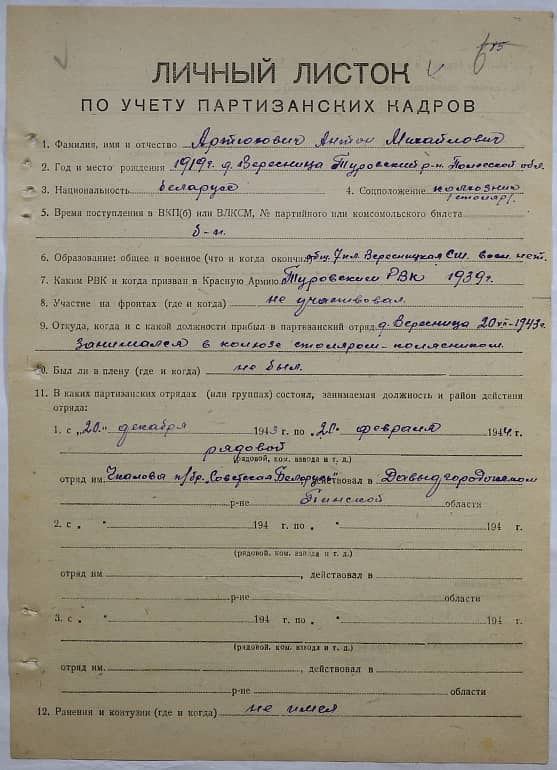 85
ЛИЧНЫЙ ЛИСТОК
ПО УЧЕТУ ПАРТИЗАНСКИХ КАДРОВ
1. Фамилия, имя и отчество Артюхович Антон Михайлович
2. Год и место рождения 1919г. д. Вересница Туровский р-н. Полесской обл.
3. Национальность беларусс 4. Соцположение колхозник
/столяр/.
5. Время поступления в ВКП(б) или ВЛКСМ, № партийного или комсомольского билета
б-п.
6. Образование: общее и военное (что и когда окончил) общ. 7 кл. Вересницкая СШ. воен. нет.
7. Каким РВК и когда призван в Красную Армию Туровским РВК 1939г.
8. Участие на фронтах (где и когда) не участвовал.
9. Откуда, когда и с какой должности прибыл в партизанский отряд д. Вересница 20-XII-1943г.
Занимался в колхозе столяром-
10. Был ли в плену (где и когда) не был.
11. В каких партизанских отрядах (или группах) состоял, занимаемая должность и район действия
отряда:
1. с „20" декабря 1943 г. по „20" февраля 1944 г.
рядовой
(рядовой, ком. взвода и т. д.)
отряд им. Чкалова п/бр. „Советская Белорусь" действовал в Давыдгородокском
р-не Пинской области
2. с „ " 194 г. по „ " 194 г.
(рядовой, ком. взвода и т. д.)
отряд им. , действовал в
р-не области
3. с „ " 194 г. по „ " 194 г.
(рядовой, ком. взвода и т. д.)
отряд им. , действовал в
р-не области
12. Ранения и контузии (где и когда) не имел